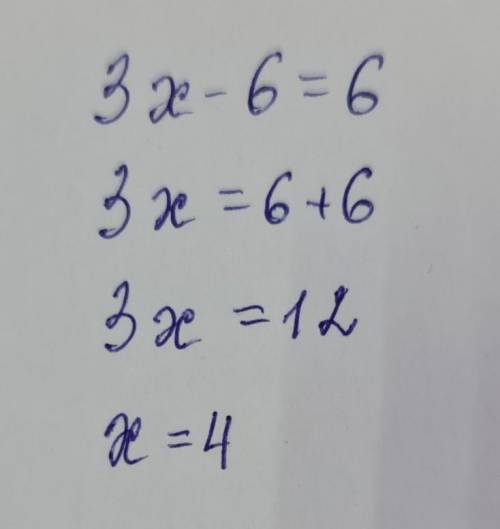 3x - 6 = 6
3x = 6 + 6
3x = 12
x = 4